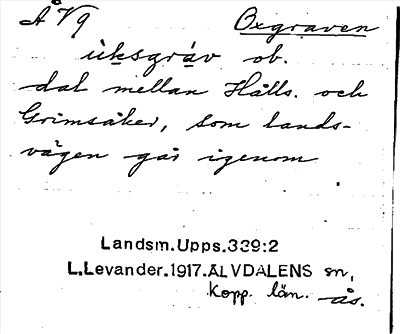 ÅV9 Oxgraven
ùksgràv ob.
dal mellan Hålls. och
Grimsåker, som lands-
vägen går igenom
Landsm.Upps.339:2
L.Levander.1917.ÄLVDALENS sn,
Kopp. län. ås.